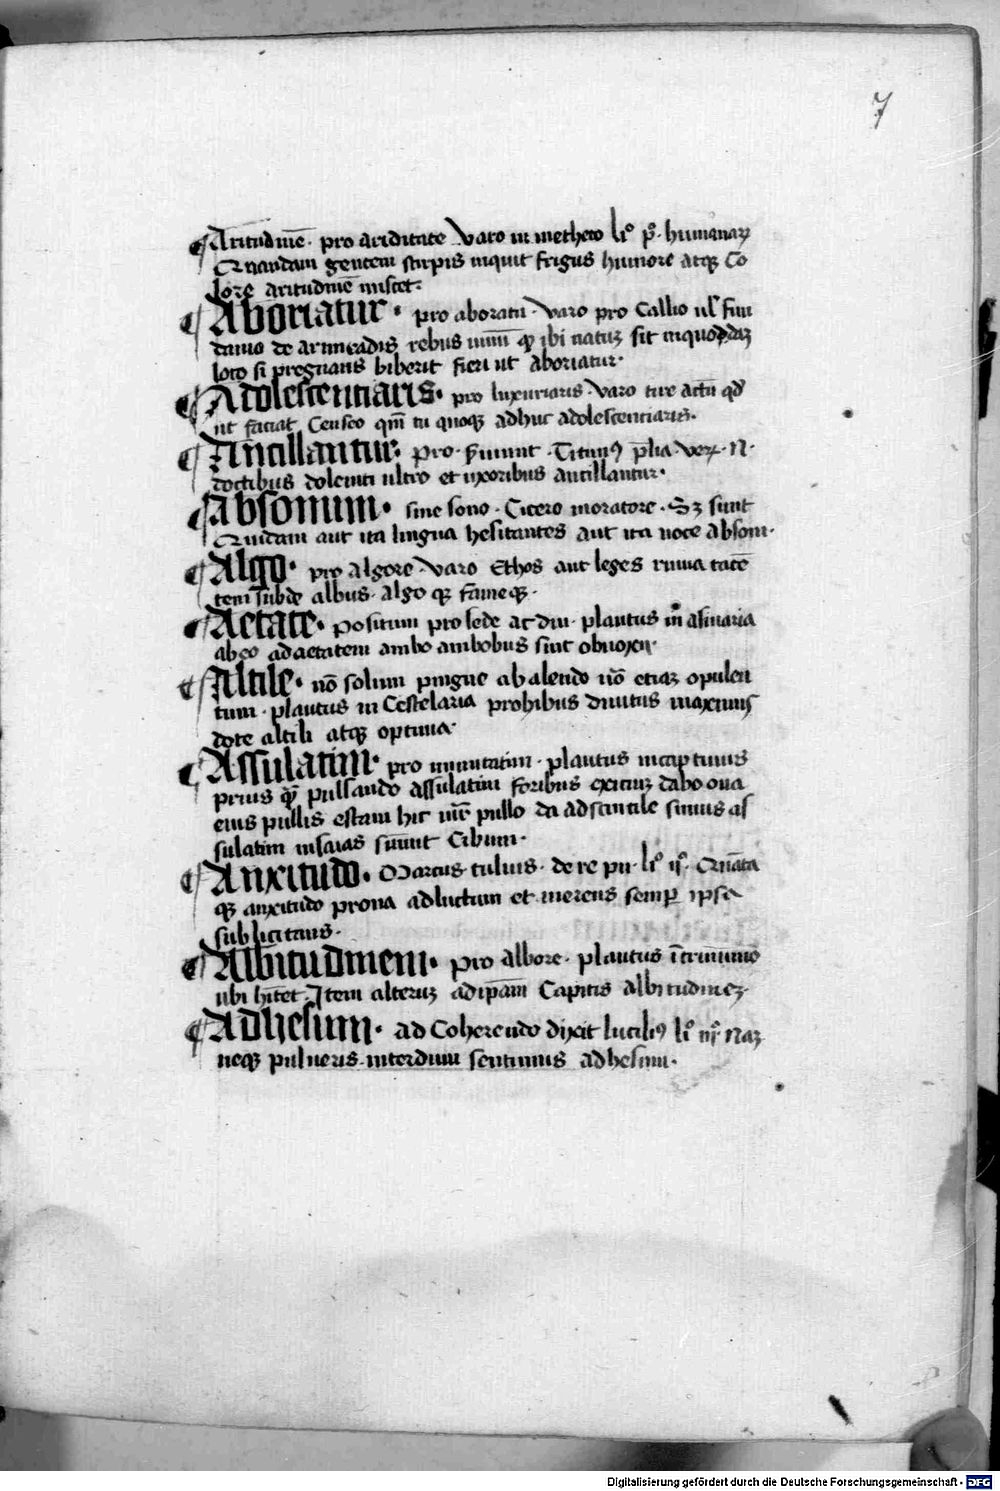 7
Aritudinē · pro ariditate Varo in metheto li° p° · humanaꝝ
Quandam gentem stirpis inquit frigus humore atqꝫ Co
lore aritudinē miscet ·
Aboriatur · pro aboratū · Varo pro Callio ul fun
danio de armeadis rebus ibi natuꝫ sit in quodaꝫ
loco si pregnans biberit fieri ut aboriatur ·
Adolescentiaris · pro luxuriaris · Varo ture actū qd
ut faciat Censeo qm̄ tu quoqꝫ adhuc adolescentiaris ·
Ancillantur · pro · s̄uiunt · Titini9 ꝓlia · veꝝ · N ·
doctibus dolenti ultro et uxoribus ancillantur ·
absonum · sine sono · Cicero moratore · Sꝫ sunt
Quidam aut ita lingua hesitantes aut ita uoce absoni ·
Algo · pro algore · Varo Ethos aut leges ruina tacē
tem subde albus · algo qꝫ fameqꝫ ·
Aetate · positum pro sede ac diu · plautus in asinaria
ab eo ad aetatem ambo ambobus sint obnoxii ·
Altile · nō solum pingue ab alendo nō etiaꝫ opulen
tum · plautus in Cestelaria prohibus diuitus maximis
dote altili atqꝫ optima ·
Assulatim · pro minutatim · plautus in captiuus
prius qꝫ pulsando assulatim foribus exituꝫ dabo oua
eius pullis estam hic pullo da ad simus as
sulatim insaias sūunt Cibum ·
Anxitudo · Marcus tulius · de re pu · li° ij° · Qn̄ata
qꝫ anxitudo prona ad luctum et merens semꝑ ipsa
sublicitans ·
Albitudinem · pro albore · plautus ī trinūmo
ubi hītet · Item alteruꝫ ad ip̄am Capitis albitudineꝫ ·
Adhesum · ad Coherendo dixit lucili9 li° iij° Naꝫ
neqꝫ pulueris interdum sentimus adhesum ·
Digitalisierung gefördert durch die Deutsche Forschungsgemeinschaft - DFG